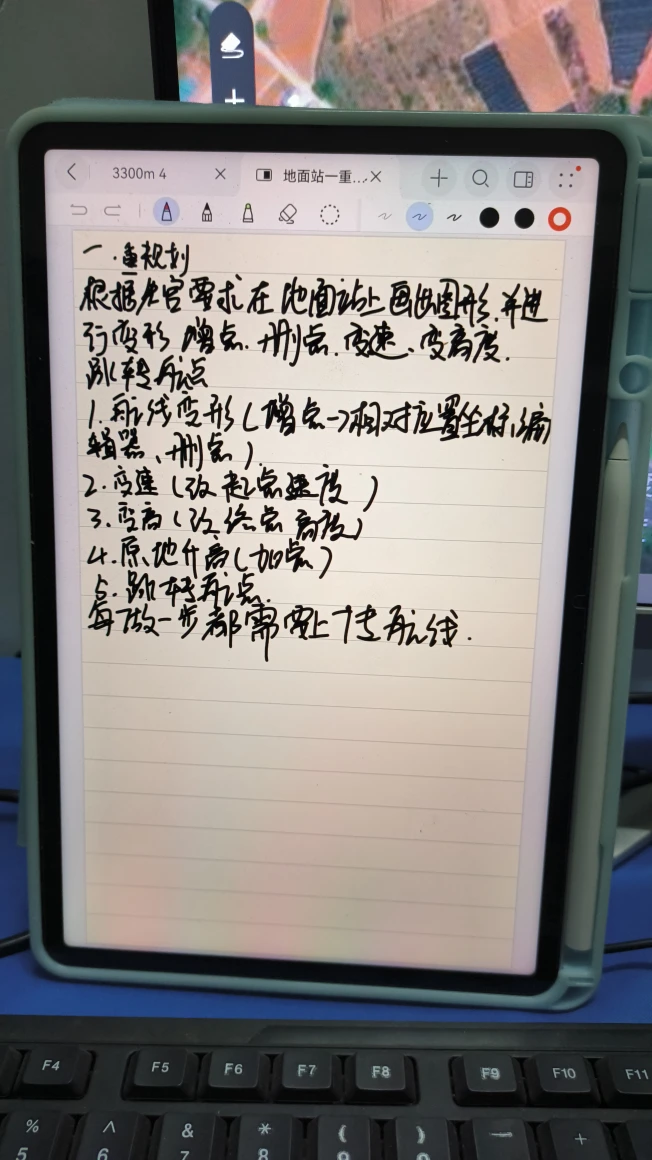 3300m 4
地面站一重...
一.重规划
根据考官要求在地面站上画出图形.并进
行变形 增点.删点.变速、变高度.
跳转航点
1.航线变形(增点→相对位置坐标、编
辑器、删点)
2.变速(改起点速度)
3.变高(改终点高度)
4.原地升高(加点)
5.跳转航点.
每做一步都需要上传航线.
F4 F5 F6 F7 F8 F9 F10 F11
% ^ & * ( ) — +
5 6 7 8 9 0